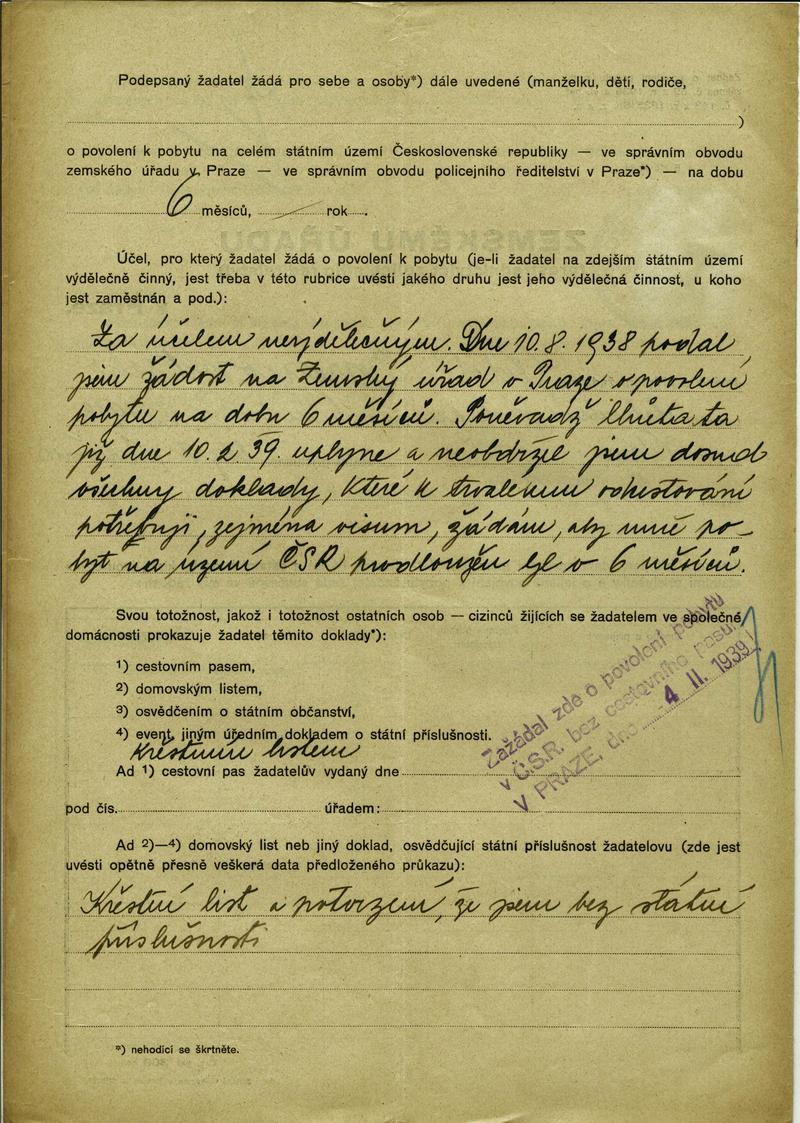 Podepsaný žadatel žádá pro sebe a osoby*) dále uvedené (manželku, děti, rodiče,
)
o povolení k pobytu na celém státním území Československé republiky — ve správním obvodu
zemského úřadu v Praze — ve správním obvodu policejního ředitelství v Praze*) — na dobu
6 měsíců, — rok
Účel, pro který žadatel žádá o povolení k pobytu (je-li žadatel na zdejším státním území
výdělečně činný, jest třeba v této rubrice uvésti jakého druhu jest jeho výdělečná činnost, u koho
jest zaměstnán a pod.):
Za účelem nevýdělečným. Dne 10. 8. 1938 podal
jsem žádost na Zemský úřad v Praze o povolení
pobytu na dobu 6 měsíců. Poněvadž lhůta ta
již dne 10. 2. 39. uplyne a neobdržel jsem dosud
všechny doklady, které k trvalému
potřebuji, zejména visum, žádám, aby mně po-
byt na území ČSR prodloužen byl o 6 měsíců.
Svou totožnost, jakož i totožnost ostatních osob — cizinců žijících se žadatelem ve společné
domácnosti prokazuje žadatel těmito doklady*):
1) cestovním pasem,
2) domovským listem,
3) osvědčením o státním občanství,
4) event. jiným úředním dokladem o státní příslušnosti.
křestním listem
Zažádal zde o povolení pobytu
v Č.S.R. bez cestovního pasu.
V PRAZE, dne 4 II. 1939
Ad 1) cestovní pas žadatelův vydaný dne
pod čís. úřadem:
Ad 2)—4) domovský list neb jiný doklad, osvědčující státní příslušnost žadatelovu (zde jest
uvésti opětně přesně veškerá data předloženého průkazu):
Křestní list a potvrzení, že jsem bez státní
příslušnosti
*) nehodící se škrtněte.